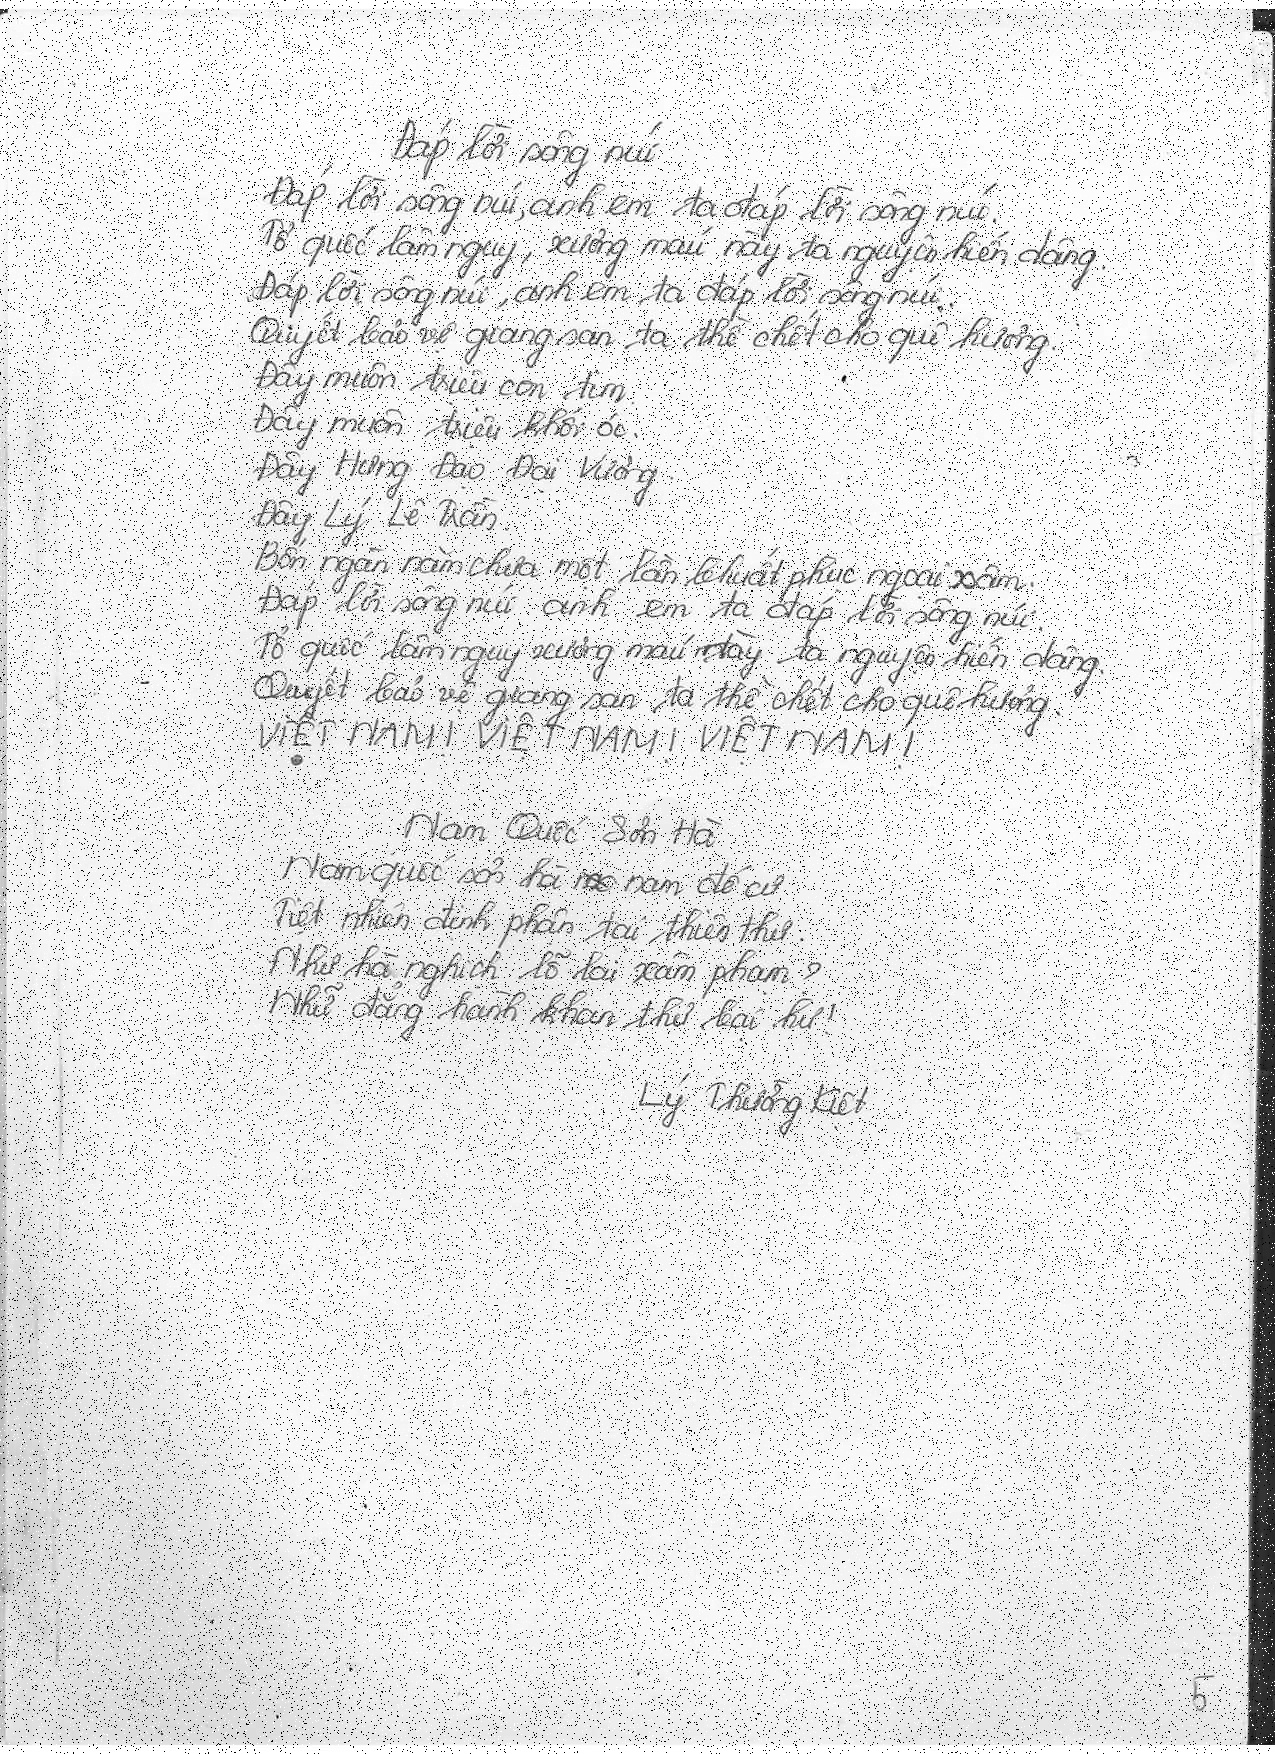 Đáp lời sông núi
Đáp lời sông núi, anh em ta đáp lời sông núi.
Tổ quốc lâm nguy, xương máu này ta nguyện hiến dâng.
Đáp lời sông núi, anh em ta đáp lời sông núi.
Quyết bảo vệ giang san ta thề chết cho quê hương.
Đây muôn triệu con tim.
Đây muôn triệu khối óc.
Đây Hưng Đạo Đại Vương
Đây Lý Lê Trần.
Bốn ngàn năm chưa một lần khuất phục ngoại xâm.
Đáp lời sông núi anh em ta đáp lời sông núi.
Tổ quốc lâm nguy xương máu này ta nguyện hiến dâng.
Quyết bảo vệ giang san ta thề chết cho quê hương.
VIỆT NAM! VIỆT NAM! VIỆT NAM!
Nam Quốc Sơn Hà
Nam quốc sơn hà nam đế cư
Tiệt nhiên định phận tại thiên thư.
Như hà nghịch lỗ lai xâm phạm?
Nhữ đẳng hành khan thủ bại hư!
Lý Thường Kiệt
5